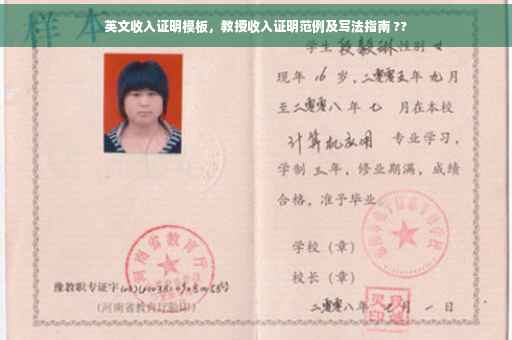 英文收入证明模板，教授收入证明范例及写法指南 ??
样本
学生 段毅琳 性别 女
现年 16 岁，二零零五年 九 月
至二零零八 年 七 月在本校
计算机应用 专业学习，
学制 三 年，修业期满，成绩
合格，准予毕业
学校（章）
校长（章）
河南省教育厅
豫教职专证字
（河南省教育厅验印）
二零零八年 七 月 一 日